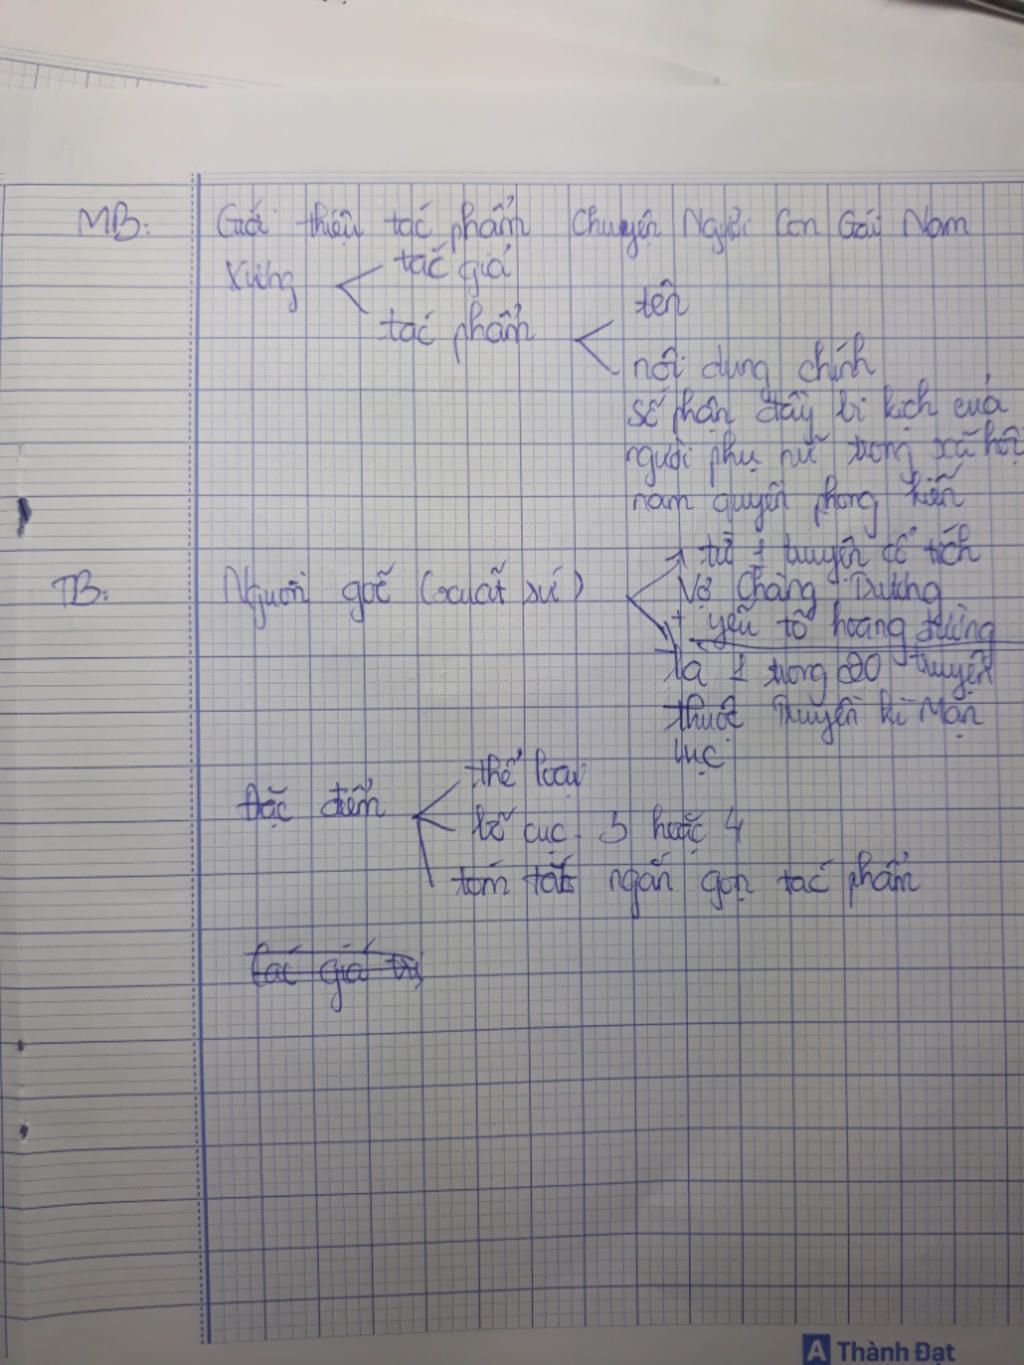 MB: Giới thiệu tác phẩm Chuyện Người Con Gái Nam
Xương
tác giả
tác phẩm
tên
nội dung chính
số phận đầy bi kịch của
người phụ nữ trong xã hội
nam quyền phong kiến
TB: Nguồn gốc (xuất xứ)
từ 1 truyện cổ tích
Vợ Chàng Trương
+ yếu tố hoang đường
là 1 trong 20 truyện
thuộc Truyền kì Mạn
Lục
Đặc điểm
thể loại
bố cục: 3 hoặc 4
tóm tắt ngắn gọn tác phẩm
Các giá trị
A Thành Đạt